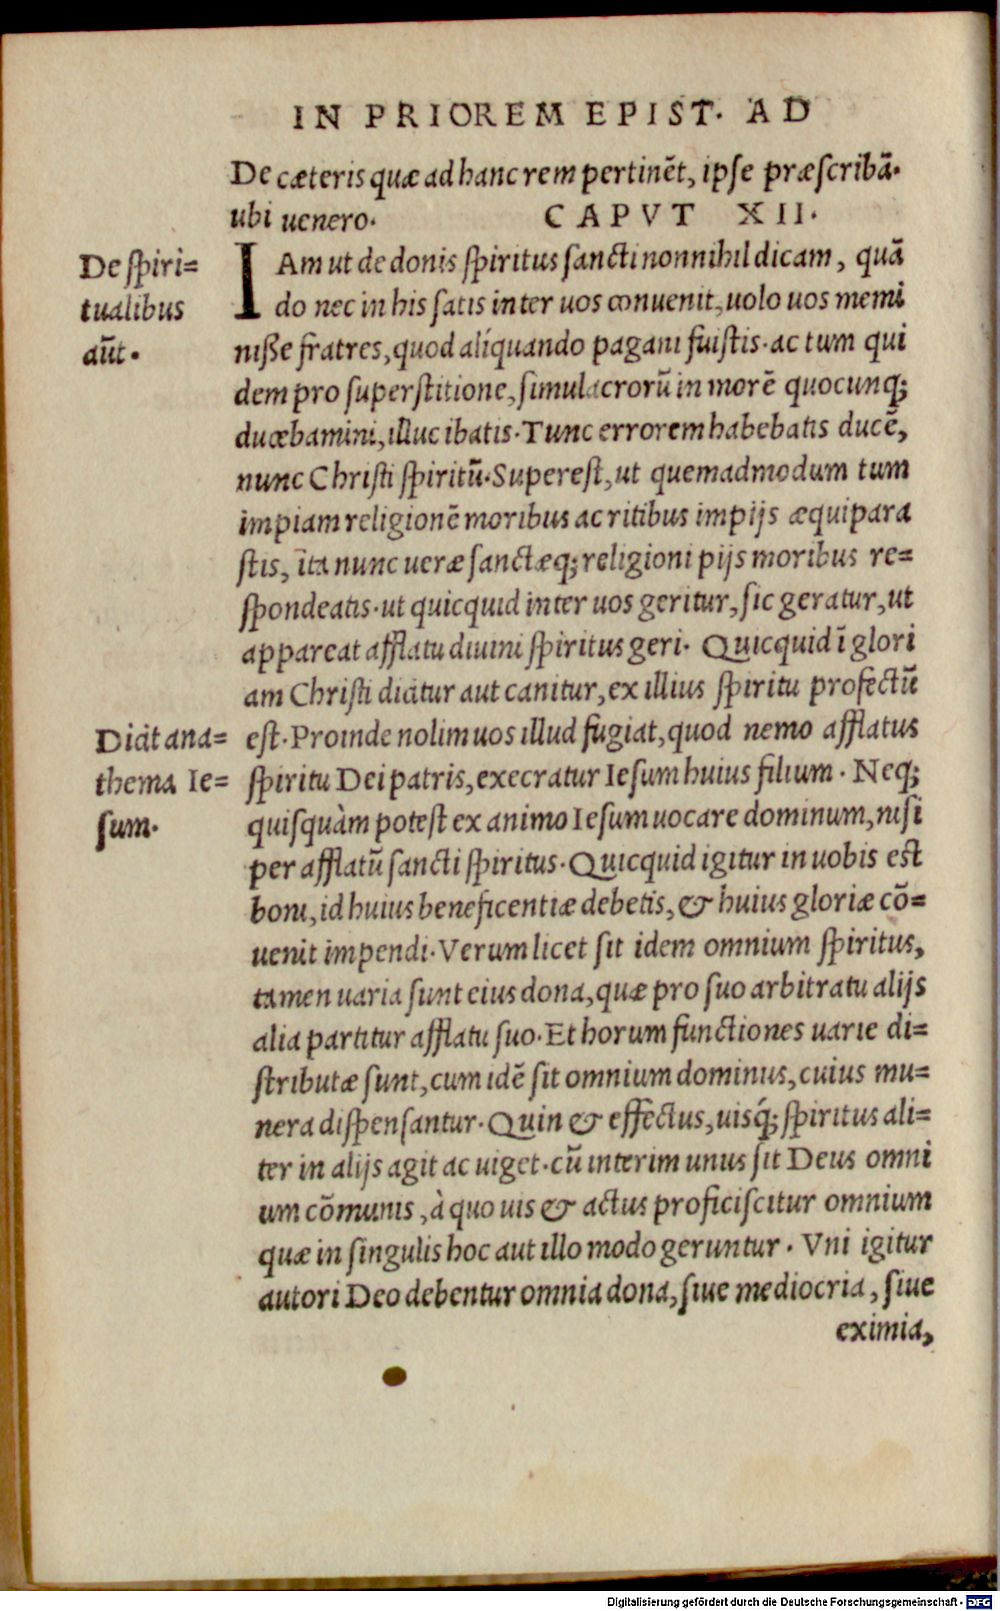 IN PRIOREM EPIST. AD
De cæteris quæ ad hanc rem pertinēt, ipse præscribā.
ubi uenero.
CAPVT XII.
De spiri=
tualibus
aūt.
IAm ut de donis spiritus sancti nonnihil dicam, quā
do nec in his satis inter uos conuenit, uolo uos memi
nisse fratres, quod aliquando pagani fuistis. ac tum qui
dem pro superstitione, simulacrorū in morē quocunq;
ducebamini, illuc ibatis. Tunc errorem habebatis ducē,
nunc Christi spiritū. Superest, ut quemadmodum tum
impiam religionē moribus ac ritibus impijs æquipara
stis, ita nunc ueræ sanctæq; religioni pijs moribus re=
spondeatis. ut quicquid inter uos geritur, sic geratur, ut
appareat afflatu diuini spiritus geri. Quicquid ī glori
am Christi dicitur aut canitur, ex illius spiritu profectū
Dicit ana=
thema Ie=
sum.
est. Proinde nolim uos illud fugiat, quod nemo afflatus
spiritu Dei patris, execratur Iesum huius filium. Neq;
quisquàm potest ex animo Iesum uocare dominum, nisi
per afflatū sancti spiritus. Quicquid igitur in uobis est
boni, id huius beneficentiæ debetis, & huius gloriæ cō=
uenit impendi. Verum licet sit idem omnium spiritus,
tamen uaria sunt eius dona, quæ pro suo arbitratu alijs
alia partitur afflatu suo. Et horum functiones uarie di=
stributæ sunt, cum idē sit omnium dominus, cuius mu=
nera dispensantur. Quin & effectus, uisq́; spiritus ali=
ter in alijs agit ac uiget. cū interim unus sit Deus omni
um cōmunis, à quo uis & actus proficiscitur omnium
quæ in singulis hoc aut illo modo geruntur. Vni igitur
autori Deo debentur omnia dona, siue mediocria, siue
eximia,
Digitalisierung gefördert durch die Deutsche Forschungsgemeinschaft - DFG